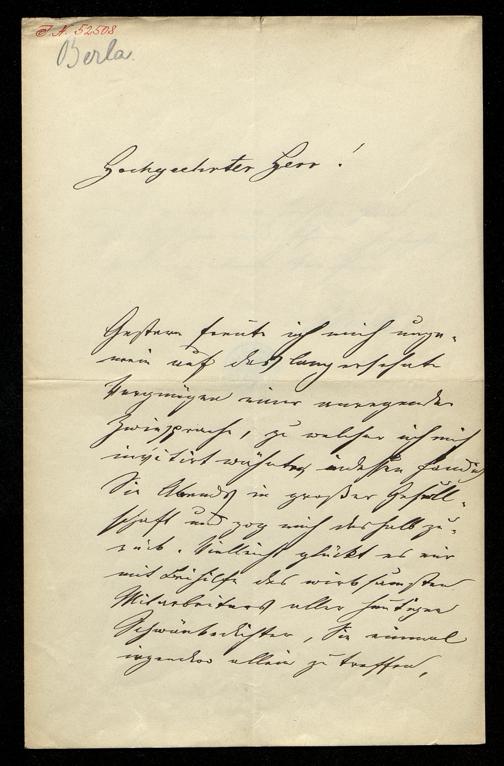 J. N. 52508
Berla
Hochgeehrter Herr!
Gestern freute ich mich unge-
mein auf das langersehnte
Vergnügen einer anregenden
Zwiesprache, zu welcher ich mich
invitirt wähnte, indessen fand ich
Sie Abends in großer Gesell-
schaft und zog mich deshalb zu-
rück. Vielleicht glückt es mir
mit Beihilfe des wirksamsten
Mitarbeiters aller heutigen
Sie einmal
irgendwo allein zu treffen,